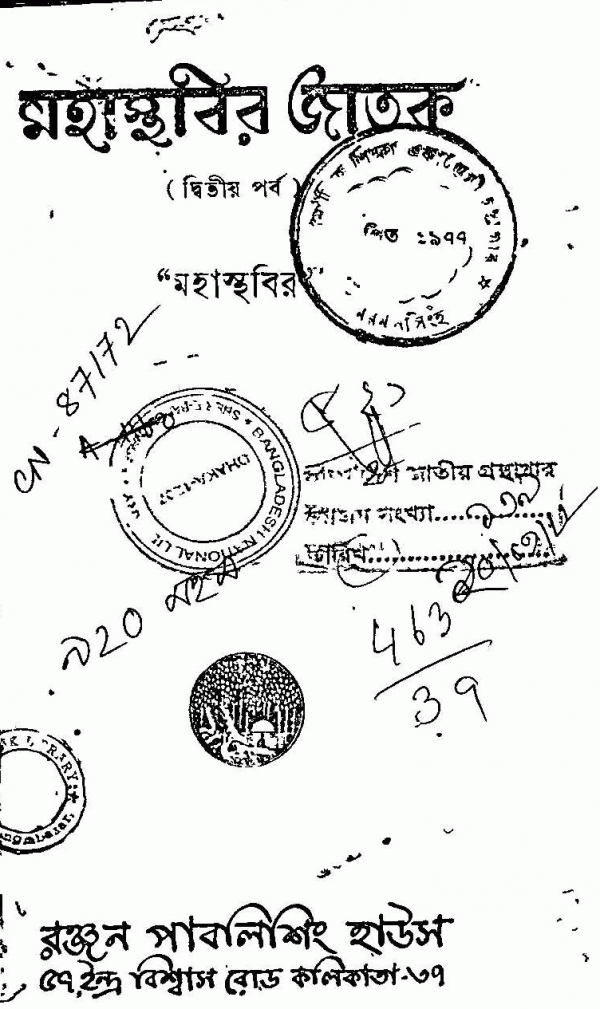 মহাস্থবির জাতক
( দ্বিতীয় পর্ব )
স্থাপিত ১৯৭৭
“মহাস্থবির”
CN - 87172
BANGLADESH NATIONAL
DHAKA
জাতীয় গ্রন্থাগার
সংখ্যা
তারিখ
৯20 মহস
463
39
LIBRARY
রঞ্জন পাবলিশিং হাউস
৫৭, ইন্দ্র বিশ্বাস রোড কলিকাতা-৩৭